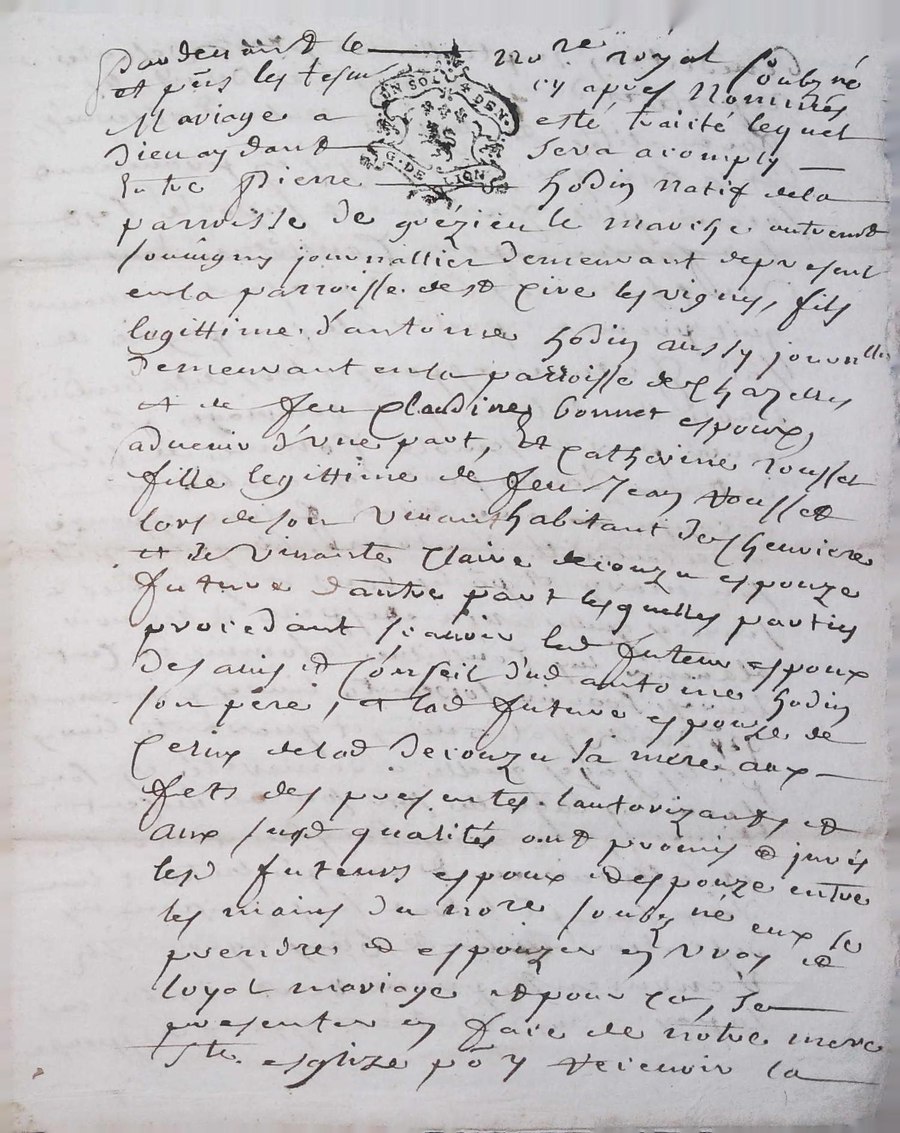 Pardevant le notre royal soubzné
et pñs les tesms cy apres nommés
Mariage a esté traicté lequel
UN SOL 4 DEN.
G. DE LION
Dieu aydant sera acomply
Entre Pierre Hodin natif de la
parroisse de grézieu le marche autrement
souvigny journallier demeurant de present
en la parroisse de st cire les vignes, fils
legittime d'antoine Hodin aussy journallier
demeurant en la parroisse de Chazelles
et de feu Claudine bonnet espoux
advenir d'une part, Et Catherine rousset
fille legittime de feu Jean rousset
lors de son vivant habitant de Chevriere
et de vivante Claire decouzu espouze
future dautre part lesquelles parties
procedant scavoir led futeur espoux
des avis et Conseil dud antoine Hodin
son père, et lad future espouze de
Ceux de lad decouzu sa mere aux
fets des presentes lautorizants et
aux susd qualités ont promis et jurés
lesd futeurs espoux et espouze entre
les mains du nore soubzné eux se
prendre et espouzer en vray et
loyal mariage et pour ce, se
presenter en face de notre mere
ste esglize po y recevoir la